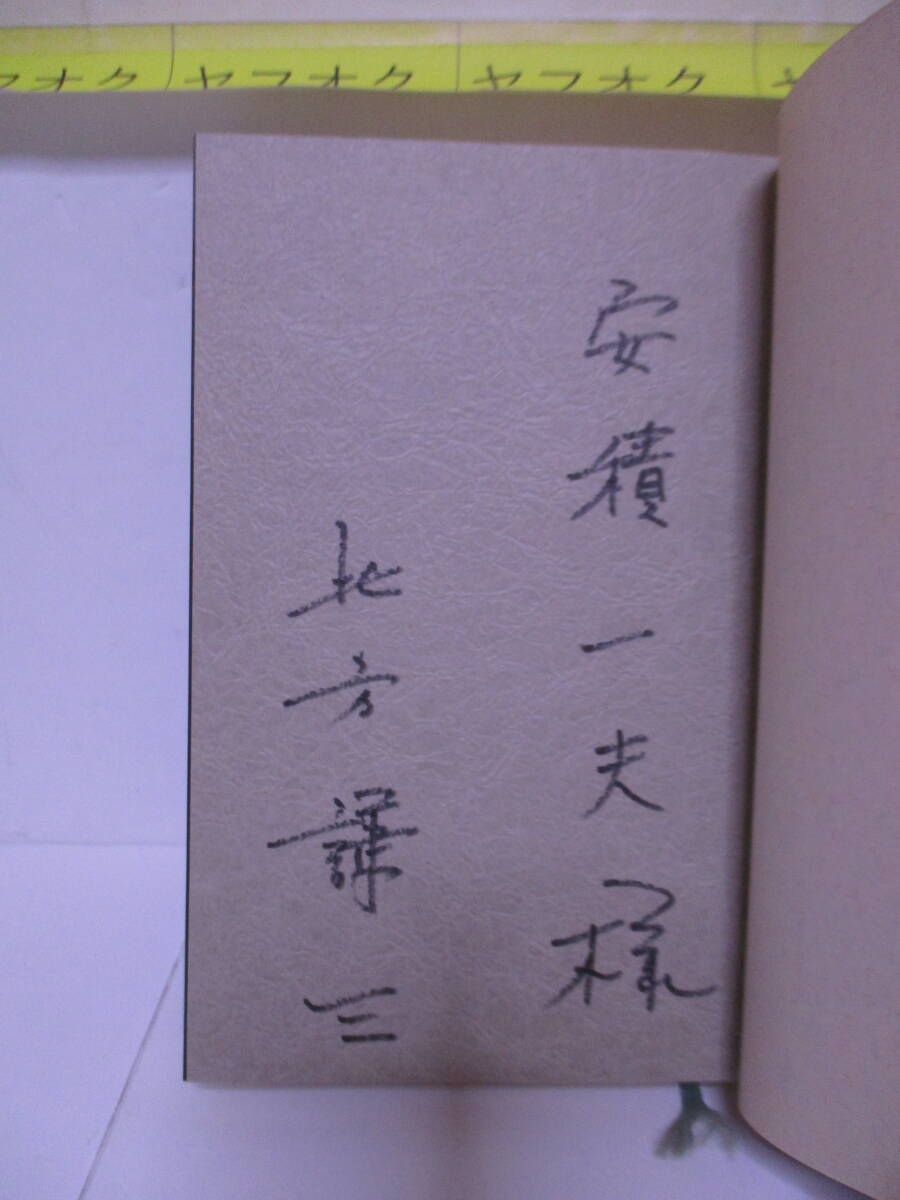 ヤフオク ヤフオク ヤフオク ヤ
安積一夫様
北方謙三